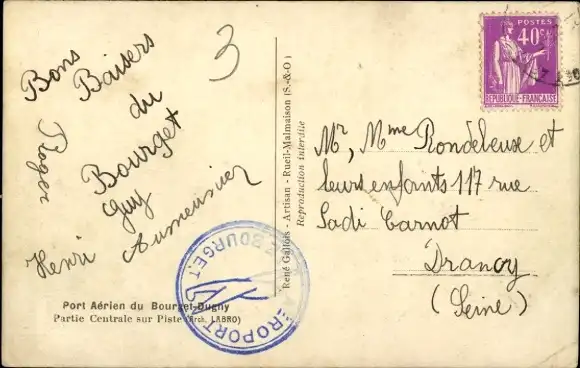 Bons
Baisers
du
Bourget
Guy
Roger
Henri Aumeunier
3
Port Aérien du Bourget-Dugny
Partie Centrale sur Piste (Arch. LABRO)
AÉROPORT
LE BOURGET
René Gallois - Artisan - Rueil-Malmaison (S.-&-O)
Reproduction interdite
POSTES
40c
RÉPUBLIQUE-FRANÇAISE
Mr, Mme Rondeleux et
leurs enfants 117 rue
Sadi Carnot
Drancy
(Seine)